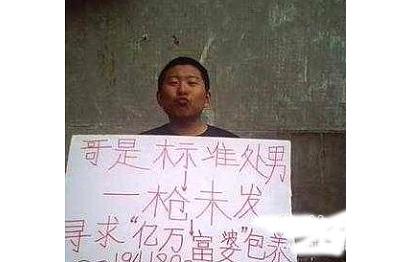 哥是标准处男
一枪未发
寻求“亿万富婆”包养